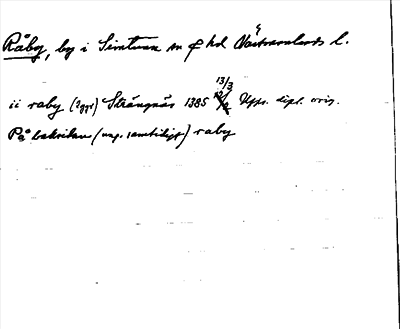 Råby, by i Simtuna sn o hd Västmanlands l.
13/3
ii raby (2ggr) Strängnäs 1385 Upps. dipl. orig.
På baksidan (ung. samtidigt) raby